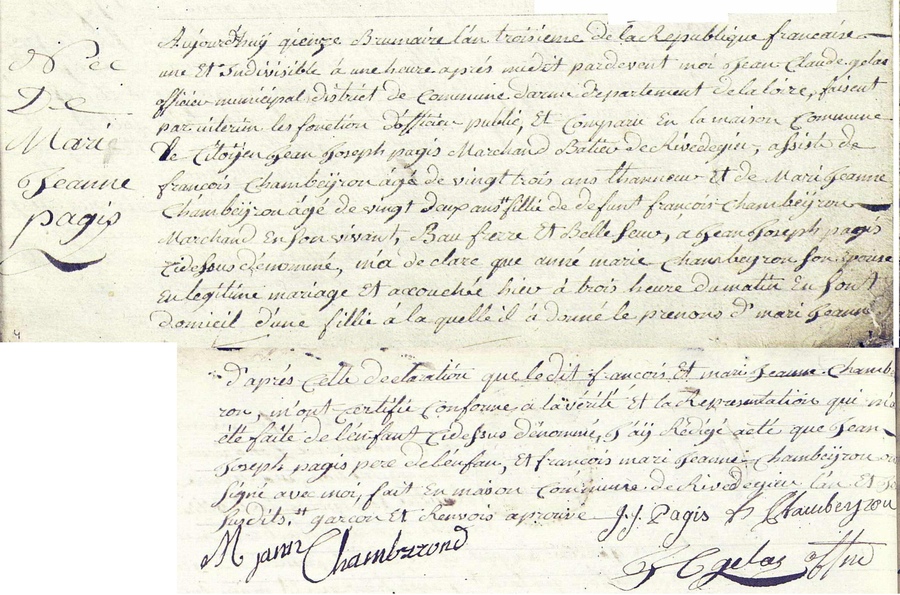 Née
De
Marie
Jeanne
pagis
Aujourdhuy quienze Brumaire l'an troisieme de la Republique francaise
une Et Indivisible à une heure aprés midit pardevent moi Jean Claude gelas
officier municipal district de Commune darme departement de la loire, faisent
par interim les fonction D'officier publié, Et Comparu En la maison Commune
le Citoyen Jean Joseph pagis Marchand Batier de Rivedegier, assisté de
francois Chambeyron âgé de vingt trois ans tharneur Et de Marie Jeanne
Chambeyron âgé de vingt deux ans fillie de defunt francois Chambeyron
Marchand En son vivant, Bau frerre Et Belle seur, à Jean Joseph pagis
Cidessus dénommé, m'a de clare que anne marie Chambeyron son epouse
En legitime mariage Et accouchée hier à trois heure du matin En sont
domicil d'une fillie à la quelle il à donné le prenons d' mari Jeann
d'aprés Cette declaration que ledit francois Et mari Jeanne Chambe
ron, m'ont Certifié Conforme à la vérité Et la Representation qui m'a
été faite de l'enfant Cidessus dénommé, J'aÿ Rédigé acte que Jean
Joseph pagis pere de l'enfan, Et francois mari Jeanne Chambeyron on
signé avec moi, fait En maison Commune de Rivedegier l'an Et
susdits. garcon Et Renvois aprouve J. J. Pagis f Chambeyron
M jann Chambeyrond
J C gelas off